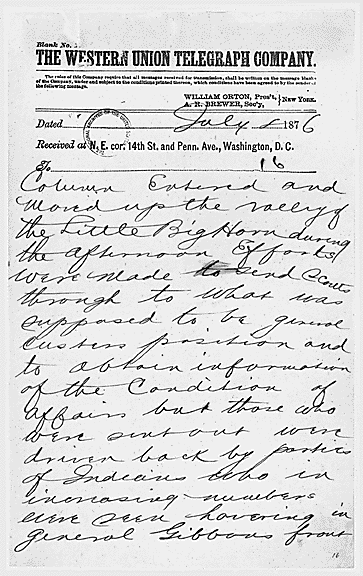 Blank No.
THE WESTERN UNION TELEGRAPH COMPANY.
The rules of this Company require that all messages received for transmission, shall be written on the message blanks
of the Company, under and subject to the conditions printed thereon, which conditions have been agreed to by the sender of
the following message.
WILLIAM ORTON, Pres't,
A. R. BREWER, Sec'y,
} New York.
Dated July 8 1876
Received at N. E. cor. 14th St. and Penn. Ave., Washington, D. C.
To 16
Column Entered and
moved up the valley of
the Little Big Horn during
the afternoon Efforts
were made to send Scouts
through to what was
supposed to be general
Custers position and
to obtain information
of the Condition of
affairs but those who
were sent out were
driven back by parties
of Indians who in
increasing numbers
were seen hovering in
general Gibbons front
16